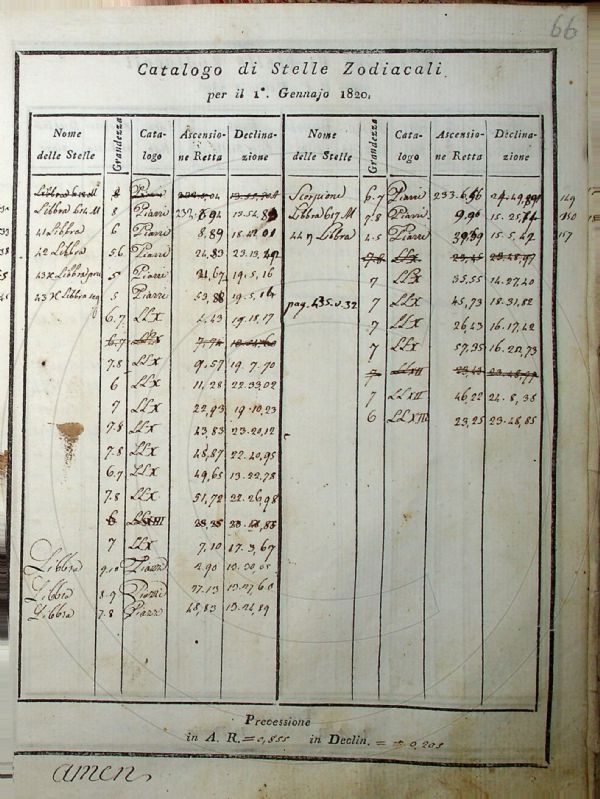 66
Catalogo di Stelle Zodiacali
per il 1°. Gennajo 1820,
Nome delle Stelle Grandezza Catalogo Ascensione Retta Declinazione
Libbra 614 M 8 Piazzi 13.54,
41 Libbra 6 Piazzi 8,89 18.42,01
42 Libbra 5.6 Piazzi 24,83 23.13,
43 κ Libbra 5 Piazzi 31,67 19.5,16
43 κ Libbra seq 5 Piazzi 53,88 19.5,16
6.7 LLX 4.43 19.18,17
6.7 LLX
7.8 LLX 9,57 19.7,70
6 LLX 11,28 22.33,02
7 LLX 22,93 19.10,23
7.8 LLX 43,83 23.20,12
7.8 LLX 48,87 22.40,95
6.7 LLX 49,65 13.22,78
7.8 LLX 51,72 22.26,98
6 LLXIII 23,25 23.48,85
7 LLX 7,10 17.3,67
Libbra 9.10 Piazzi 2.90 13.30,05
Libbra 8.9 Piazzi 27.13 13.27,60
Libbra 7.8 Piazzi 48,83 13.24,89
Nome delle Stelle Grandezza Catalogo Ascensione Retta Declinazione
Scorpione 6.7 Piazzi 233.6,56 24.49,89 149
Libbra 617 M 7.8 Piazzi 9,96 15.25,14 150
44 η Libbra 4.5 Piazzi 39,39 15.5,42 157
7.8 LLX 23,45 23.48,97
7 LLX 35,55 14.27,40
pag. 435. v. 32 7 LLX 45,73 18.31,82
7 LLX 26,43 16.17,42
7 LLX 57,35 16.22,73
7 LLXII 23,43 23.48,97
7 LLXII 46,22 24.8,38
6 LLXIII 23,25 23.48,85
Precessione
in A. R. = 0,855 in Declin. = 0,205
amen